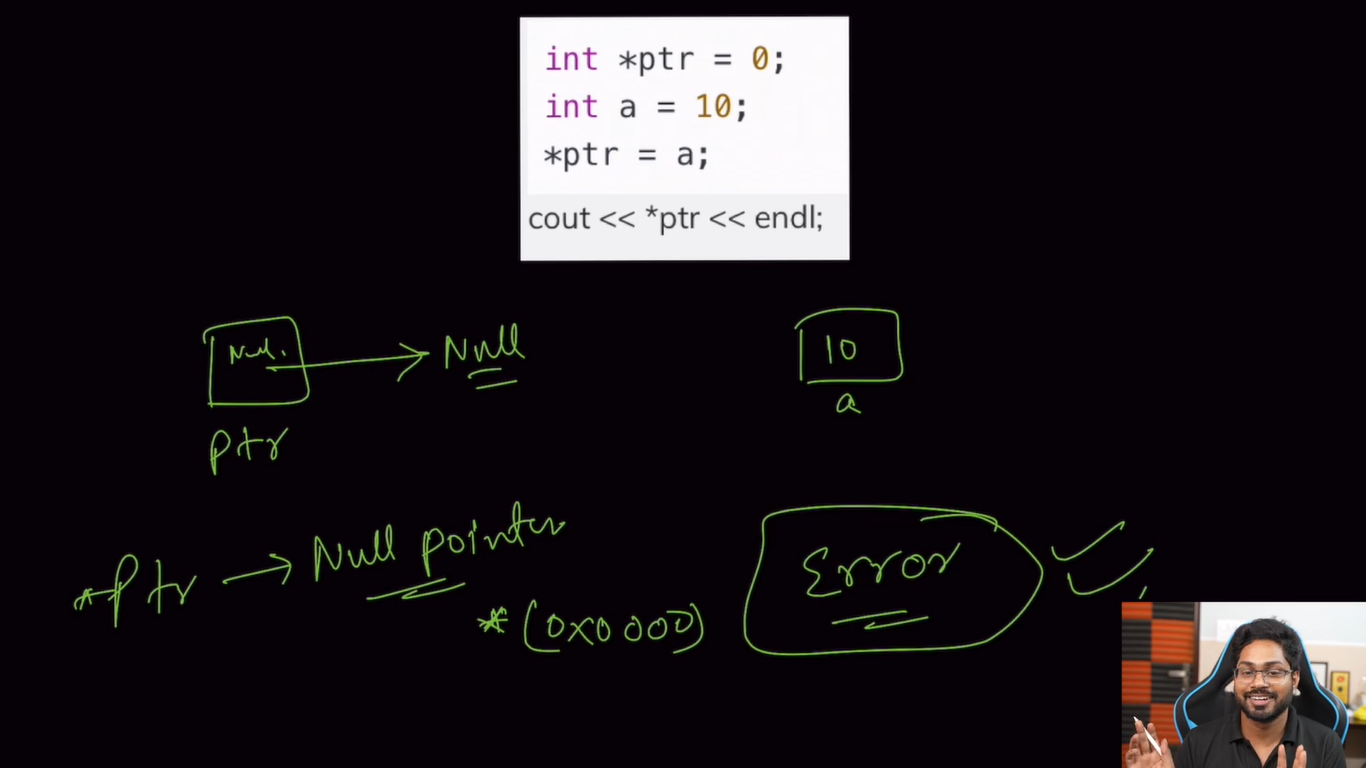 int *ptr = 0;
int a = 10;
*ptr = a;
cout << *ptr << endl;
Null.
Null
10
ptr
a
*Ptr → Null pointer
*(0x0000)
Error